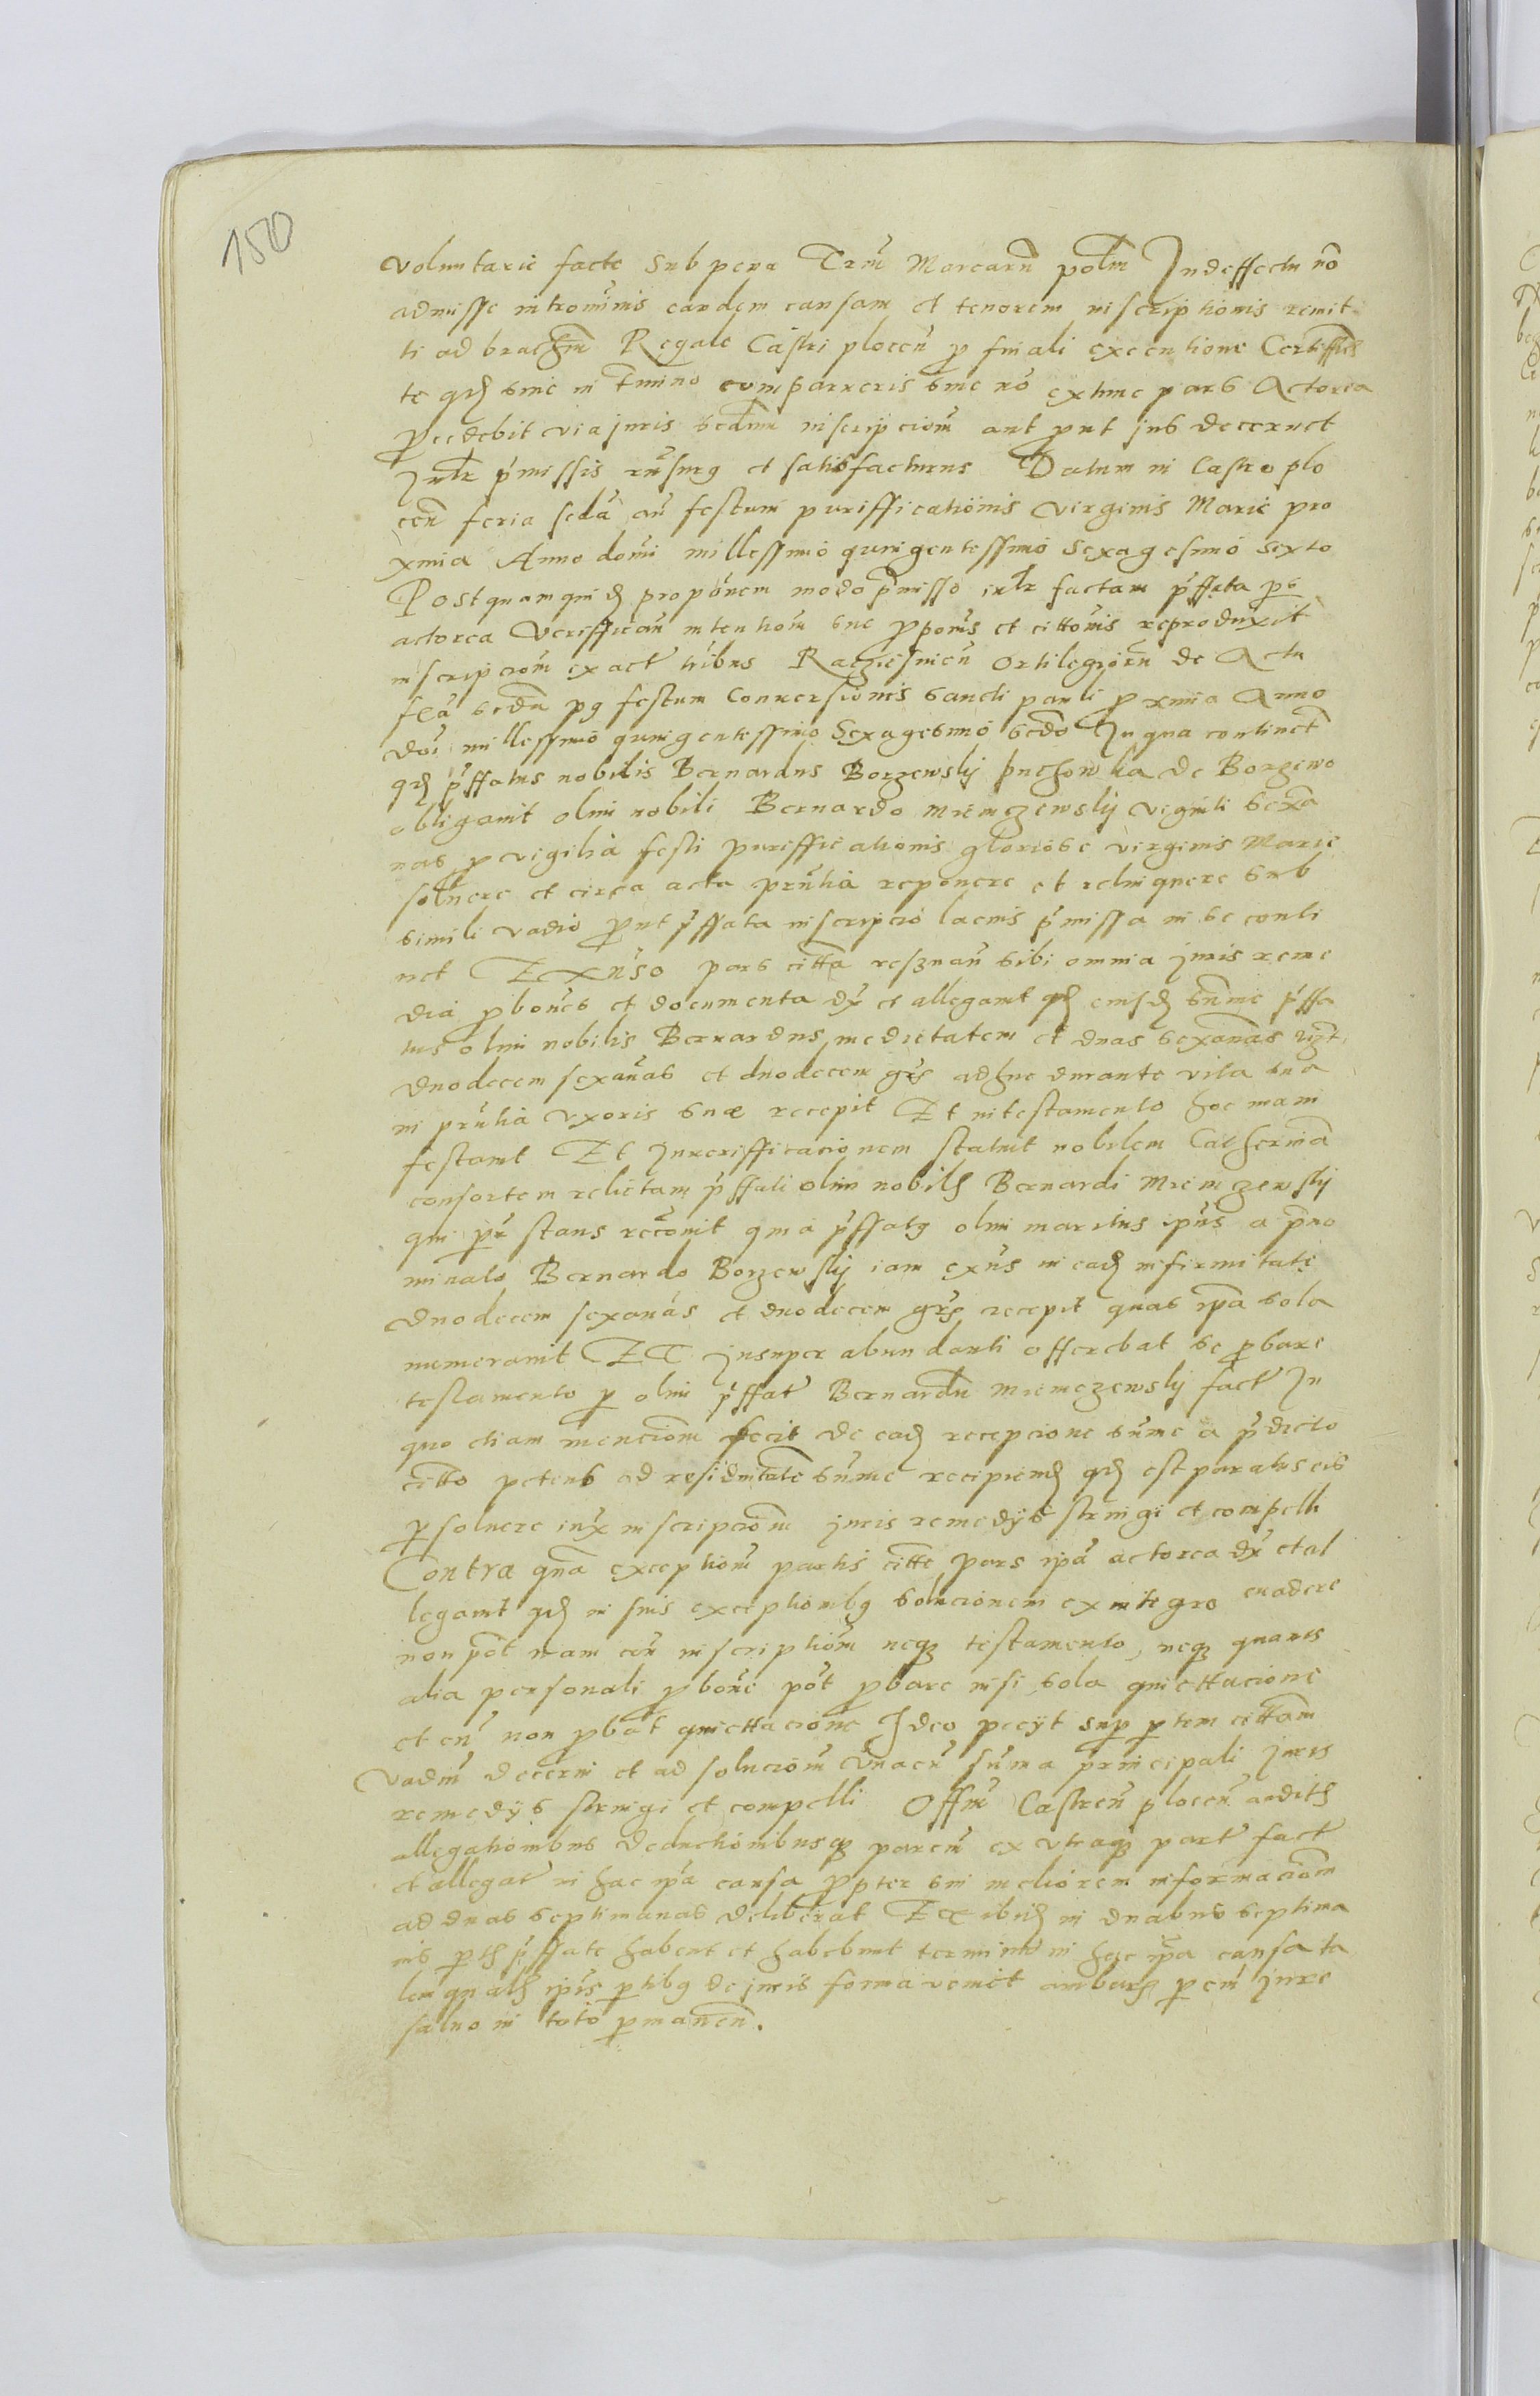 150
voluntarie facte Sub pena Triũ Marcarũ polm̃ In deffectu nõ
admisse intromĩnis eandem causam et tenorem inscriptionis remit
ti ad brachĩm Regale Castri plocen̄ p finali executione Certiffica
te qđ sive in tmino comparueris sive nõ extunc pars Actorea
pcedebit via juris scdum inscripcionẽ aut put jus decernet
Judr p̃missis rñsurg et satisfacturus Datum in Castro plo
cen̄ feria scda añ festum puriffications Virginis Marie pro
xima Anno domi millessimo quingentessimo Sexagesimo Sexto
Postquamquidẽ propõnem modo p̃misso judr factam p̃ffata ps
actorea Verifficañ intentiom̃ sue pponĩs et cittonis reproduxit
inscripciom̃ ex act tribus Raczieznien̄ de Actu
fɛã scda pg festum Conversionis Sancti pauli pxima Anno
doĩ millessimo quingentessimo Sexagesimo scdo In qua continet
qđ p̃ffatus nobilis Bernardus Borzewskij puchowka de Borzewo
obligavit olim nobili Bernardo Mremczewskij viginti sexa
nas p vigilia festi puriffications gloriose virginis Marie
solvere et circa acta pr̃ntia reponere et relinquere sub
simili vadio put p̃ffata inscripcio lacius p̃missa in se conti
net Ex adverso pars citta reservañ sibi omnia juris reme
dia pbones et documenta dx̃ et allegavit qđ eiusđ summe p̃ffa
tus olim nobilis Bernardus medietatem et duas sexanas vzt
duodecem sexanas et duodecem grs adhuc durante vita sua
in pr̃ntia uxoris suæ recepit Et in testamento hoc mani
festavit Et In verifficacionem statuit nobilem Catherina
consortem relictam p̃ffati olim nobilis Bernardi Mremczewskij
qui pr stans recõvit quia p̃ffatg olim maritus ipius a pno
minato Bernardo Borzewskij iam exñs in eađ infirmitate
duodecem sexanas et duodecem grs recepit quas ipa sola
numeravit ET Insuper abundanti offerebat se pbare
testamento p olim p̃ffat Bernardu Mremczewskij fact In
quo etiam menciom̃ fecit de eađ recepcione sũme a p̃dicto
citto petens ad residuitate sũme recipienđ qđ est paratus eis
psolvere iux inscripciom̃ juris remedijs stringi et compelli
Contra qua exceptiom̃ partis citte pars ipa actorea dx̃ et al
legavit qđ in suis exceptionibg solucionem ex integro evadere
non pot nam cũ inscriptiom̃ neqз testamento, neqз quavis
alia personali pbone pot pbare nisi sola quiettacione
et cũ non pbat quiettacione Ideo pecijt sup ptem cittam
Vadiũ decerni et ad soluciom̃ Vnacũ sũma principali juris
remedijs stringi et compelli Offm̃ Castren̄ plocen̄ auditis
allegationibus deductionibusqз parciũ ex utraqз parte fact
et allegat in hac ipa causa propter sui meliorem informaciom̃
ad duas septimanas deliberat Ex ibiđ in duabus septima
nis ptes p̃ffate habent et habebunt terminũ in hac ipa causa ta
lem qualis ipis ptibg de juris forma venĩet ambarz pciũ jure
salvo in toto pmanen̄.